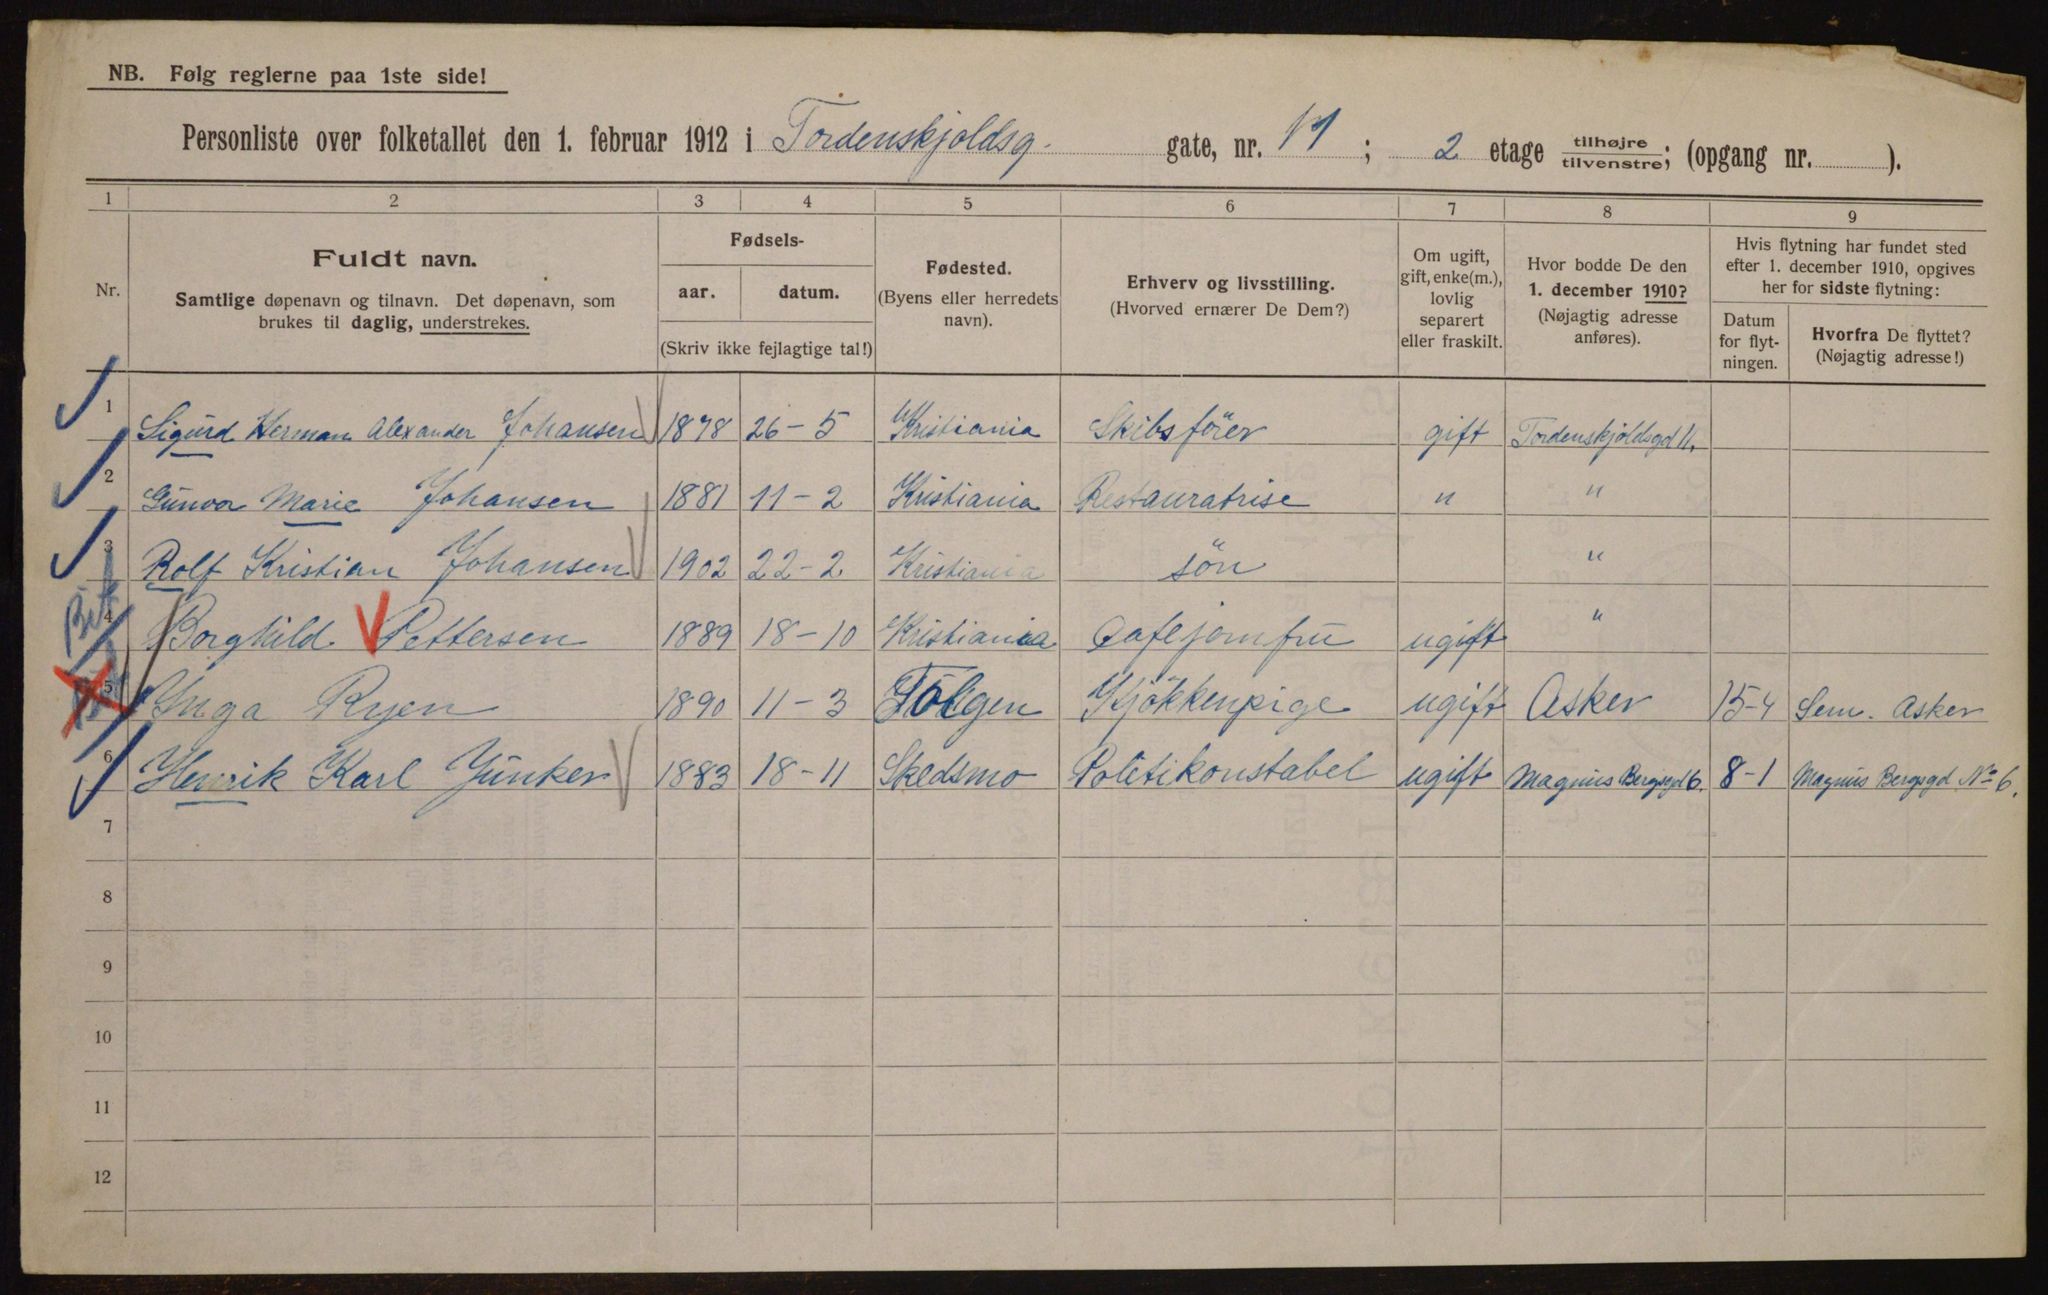 NB. Følg reglerne paa 1ste side!
Personliste over folketallet den 1. februar 1912 i Tordenskjoldsg. gate, nr. 11; 2 etage tilhøjre/tilvenstre; (opgang nr. ).
1 2 3 4 5 6 7 8 9
Nr.
Fuldt navn.
Samtlige døpenavn og tilnavn. Det døpenavn, som
brukes til daglig, understrekes.
Fødsels-
aar. datum.
(Skriv ikke fejlagtige tal!)
Fødested.
(Byens eller herredets
navn).
Erhverv og livsstilling.
(Hvorved ernærer De Dem?)
Om ugift,
gift, enke(m.),
lovlig
separert
eller fraskilt.
Hvor bodde De den
1. december 1910?
(Nøjagtig adresse
anføres).
Hvis flytning har fundet sted
efter 1. december 1910, opgives
her for sidste flytning:
Datum
for flyt-
ningen.
Hvorfra De flyttet?
(Nøjagtig adresse!)
1 Sigurd Herman Alexander Johansen 1878 26-5 Kristiania Skibsförer gift Tordenskjoldsgd 11.
2 Gunvor Marie Johansen 1881 11-2 Kristiania Restauratrise " "
3 Rolf Kristian Johansen 1902 22-2 Kristiania sön "
4 Borghild Pettersen 1889 18-10 Kristiania Cafejomfru ugift "
5 Inga Ryen 1890 11-3 Tolgen Kjökkenpige ugift Asker 15-4 Sem. Asker
6 Henrik Karl Junker 1883 18-11 Skedsmo Politikonstabel ugift Magnus Bergsgd 6. 8-1 Magnus Bergsgd No 6.
7
8
9
10
11
12